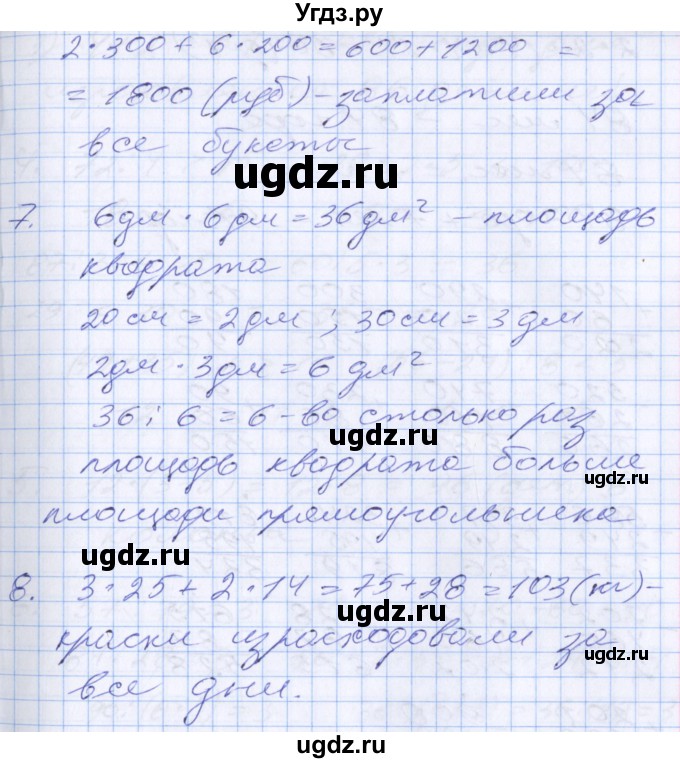 Угдз.ру
2·300+6·200=600+1200 =
= 1800 (руб) - заплатили за
все букеты
ugdz.ru
7. 6дм · 6дм = 36дм² - площадь
квадрата
20см = 2дм ; 30см = 3дм
2дм · 3дм = 6 дм²
36 : 6 = 6 - во столько раз
ugdz.ru
площадь квадрата больше
ugdz.ru
площади прямоугольника
ugdz.ru
8. 3·25+2·14=75+28=103(кг)-
ugdz.ru
краски израсходовали за
ugdz.ru
все дни.
ugdz.ru